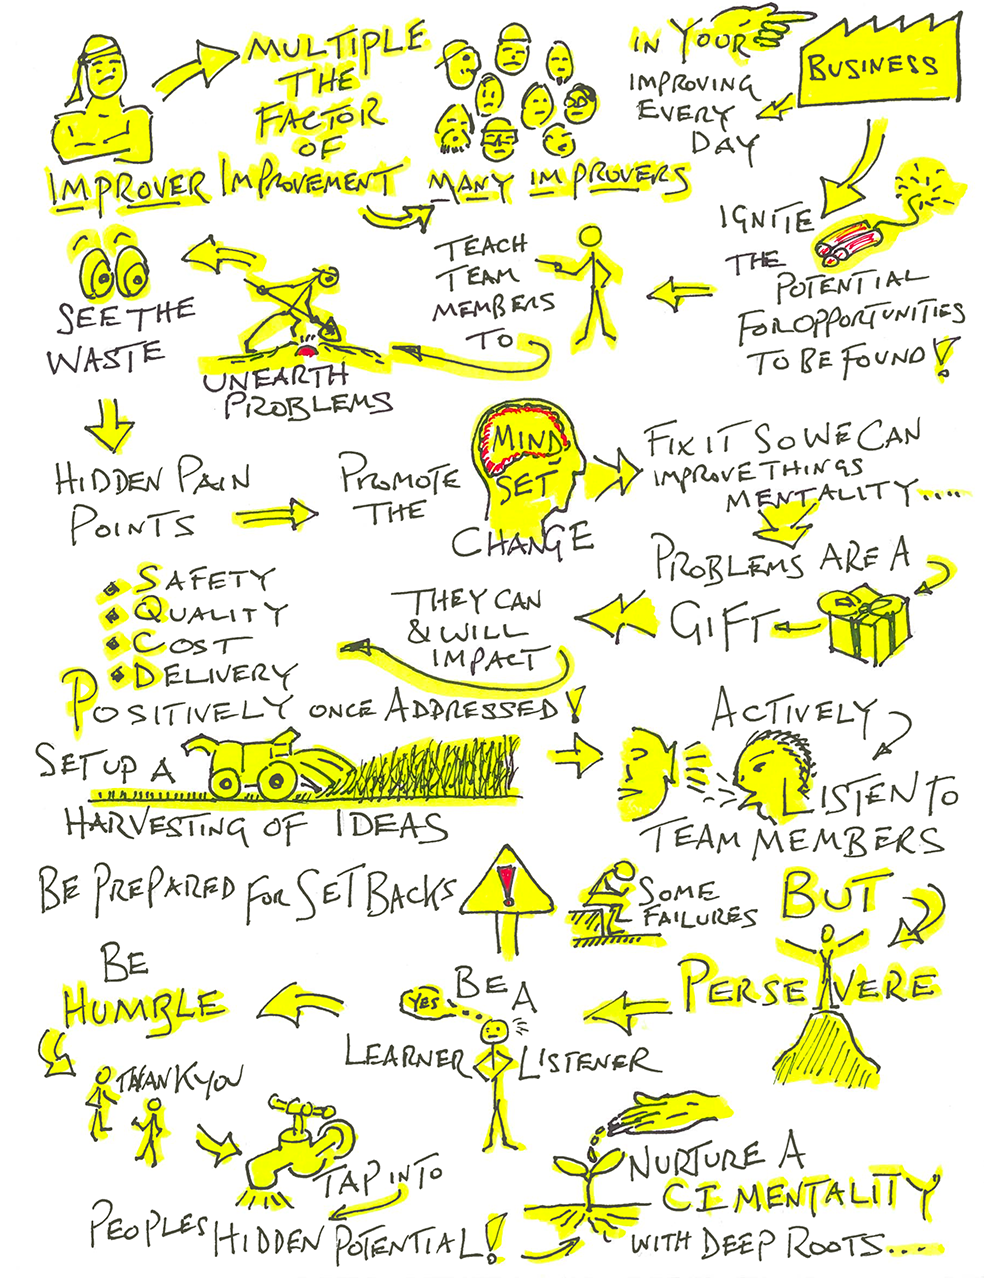 IMPROVER
MULTIPLE
THE
FACTOR
OF
IMPROVEMENT
MANY IMPROVERS
IN YOUR
BUSINESS
IMPROVING
EVERY
DAY
IGNITE
THE
POTENTIAL
FOR OPPORTUNITIES
TO BE FOUND!
TEACH
TEAM
MEMBERS
TO
UNEARTH
PROBLEMS
SEE THE
WASTE
HIDDEN PAIN
POINTS
PROMOTE
THE
MIND
SET
CHANGE
FIX IT SO WE CAN
IMPROVE THINGS
MENTALITY....
PROBLEMS ARE A
GIFT
THEY CAN
& WILL
IMPACT
• SAFETY
• QUALITY
• COST
• DELIVERY
POSITIVELY ONCE ADDRESSED!
SET UP A
HARVESTING OF IDEAS
ACTIVELY
LISTEN TO
TEAM MEMBERS
BE PREPARED FOR SET BACKS
!
SOME
FAILURES
BUT
PERSEVERE
BE A
YES
LEARNER LISTENER
BE
HUMBLE
THANK YOU
TAP INTO
PEOPLES HIDDEN POTENTIAL!
NURTURE A
CI MENTALITY
WITH DEEP ROOTS....